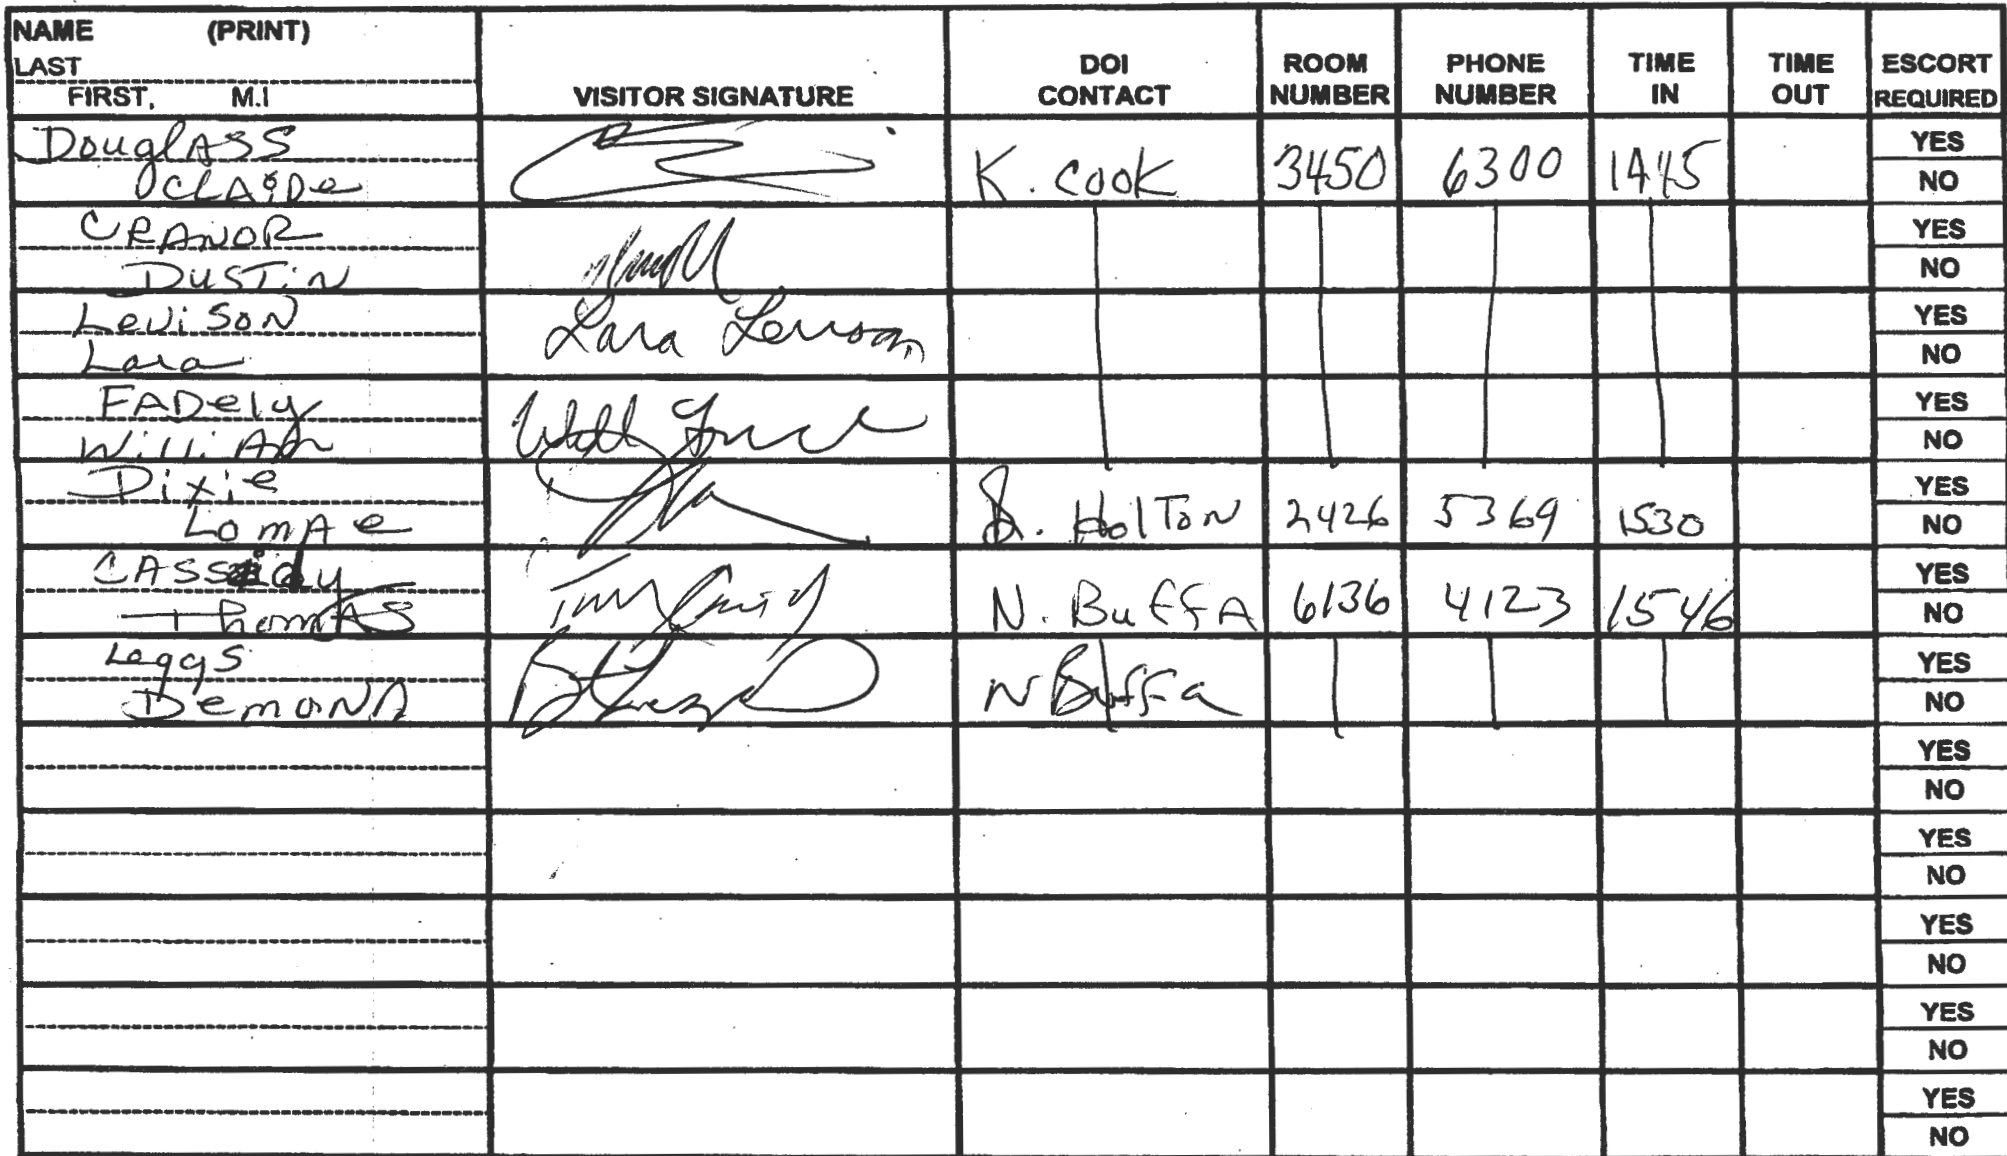 NAME (PRINT)
LAST
FIRST, M.I
VISITOR SIGNATURE
DOI CONTACT
ROOM NUMBER
PHONE NUMBER
TIME IN
TIME OUT
ESCORT REQUIRED
DouglASS
K. COOK 3450 6300 1445 YES
NO
CRANOR
DUSTiN
YES
NO
LeviSoN
Lara
Lara Levison
YES
NO
FADely
William
YES
NO
Dixie
LomAe
Holton 2426 5369 1530 YES
NO
CASSidy
ThomAS
N. BuffA 6136 4123 1546 YES
NO
Leggs
DemonD
N Buffa YES
NO
YES
NO
YES
NO
YES
NO
YES
NO
YES
NO